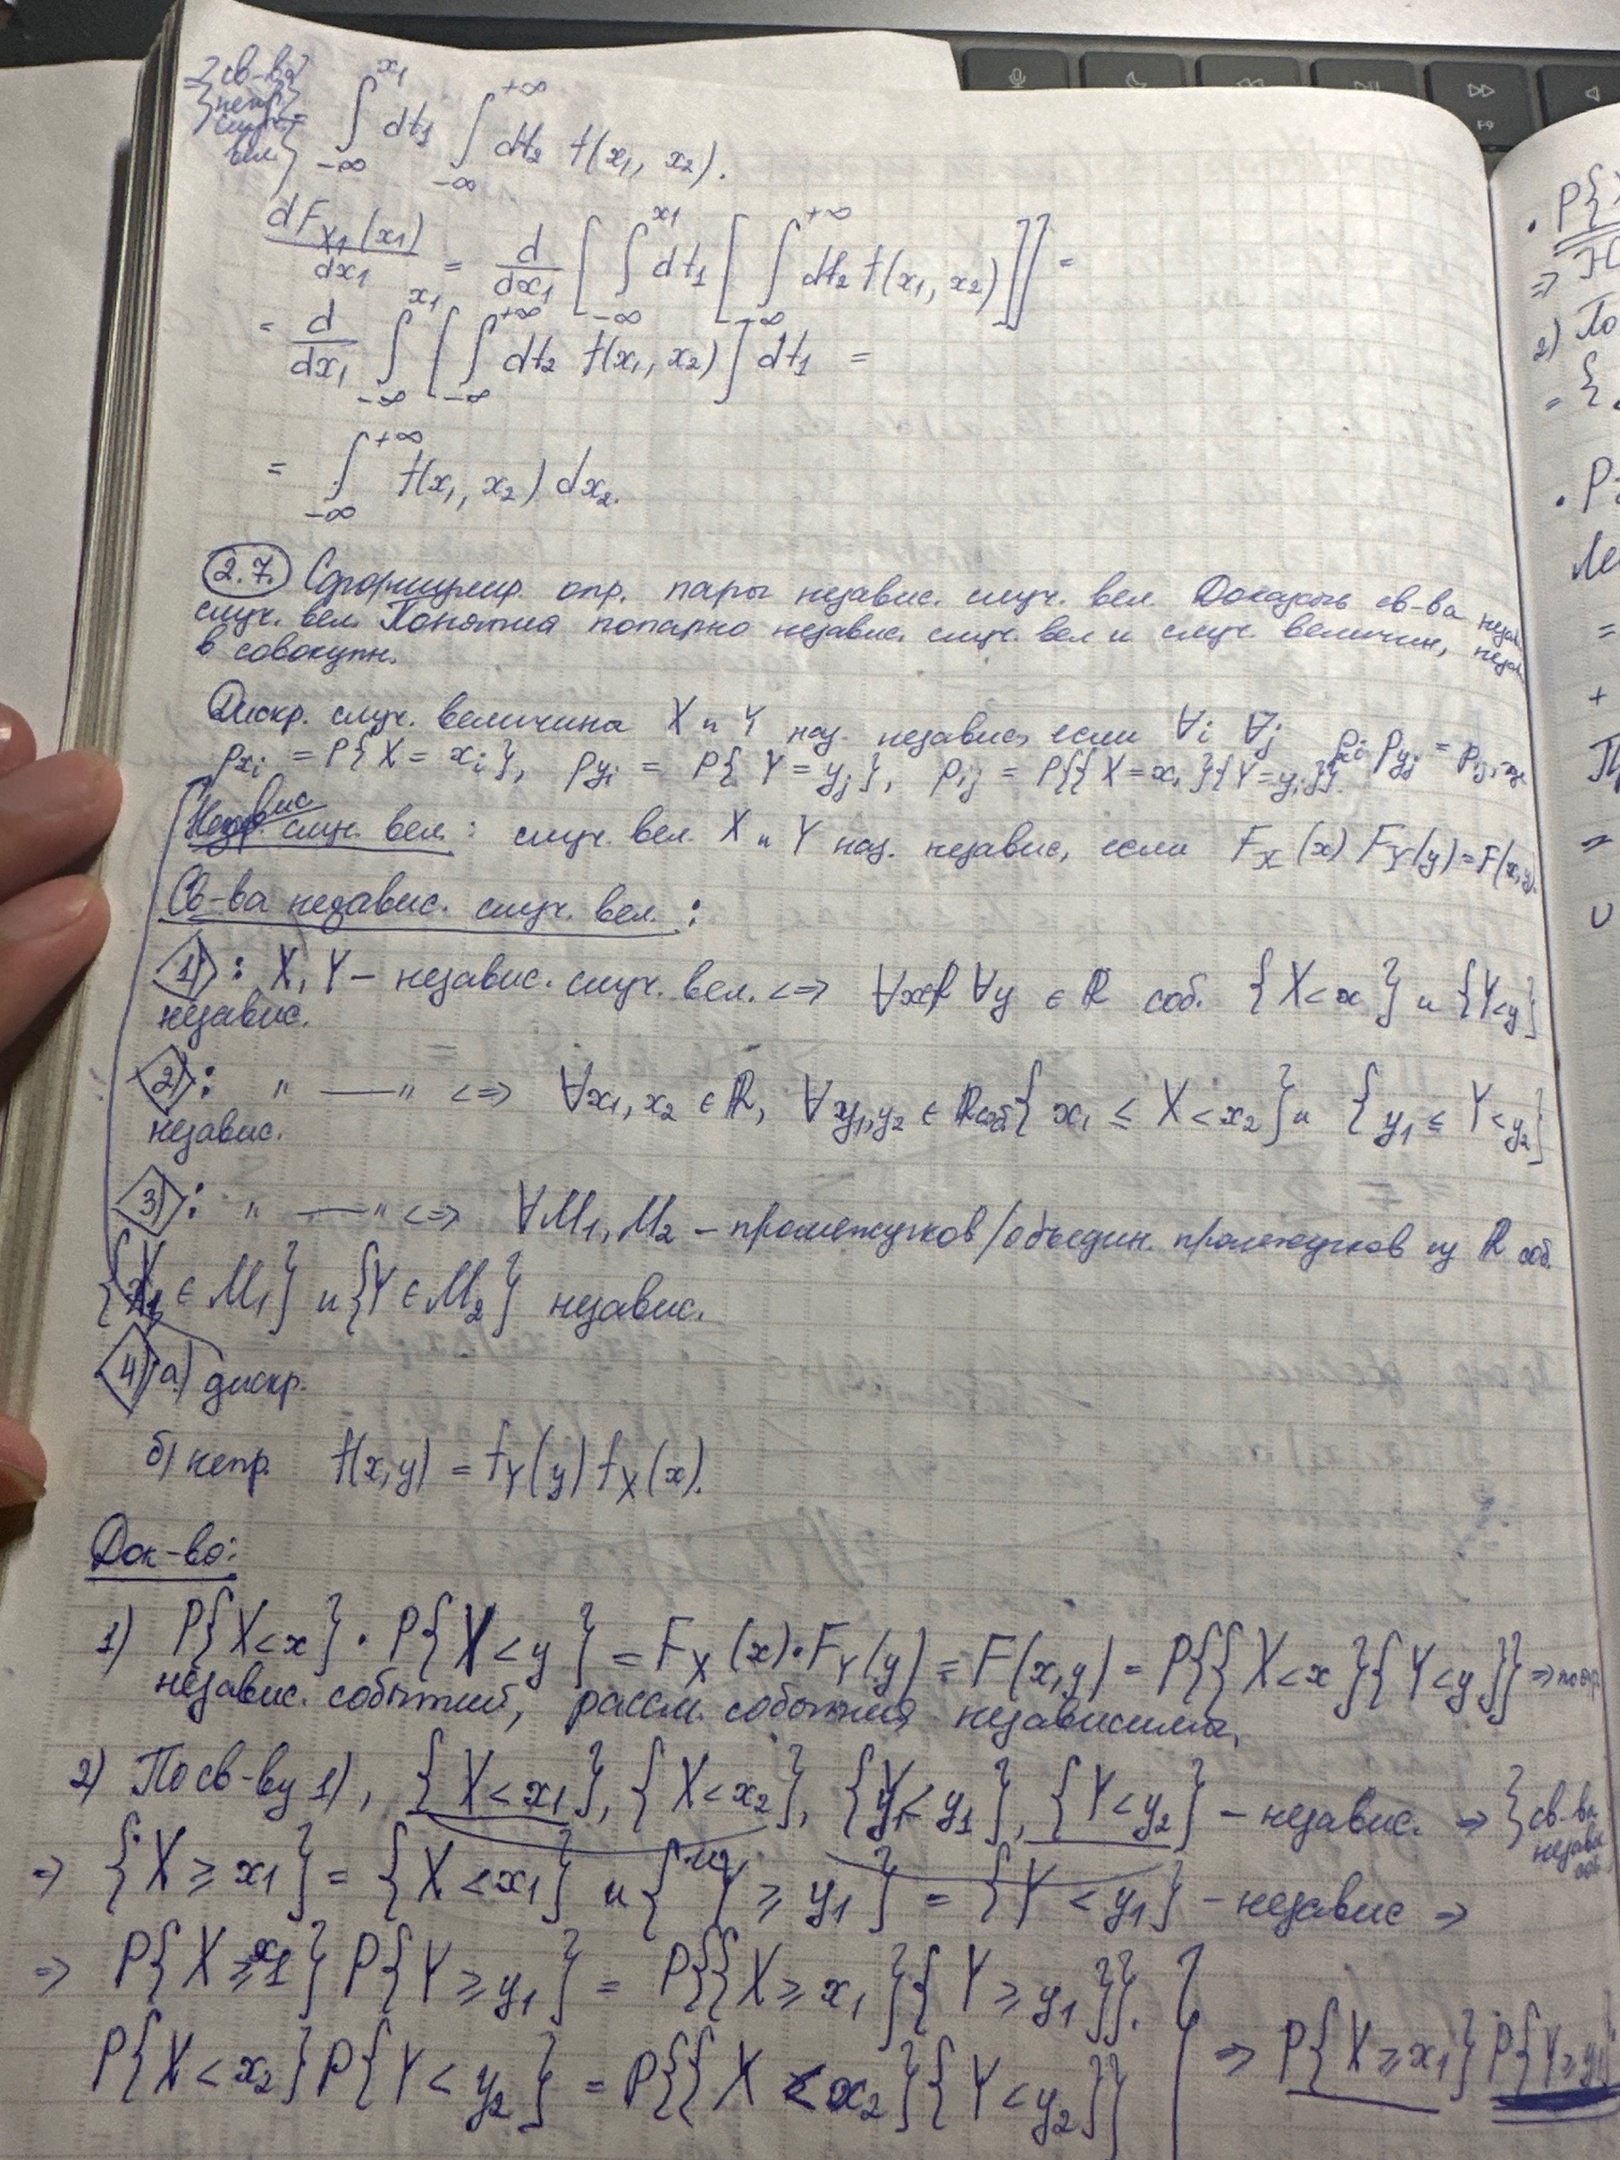 = {св-ва непр. случ. вел.} = ∫_{-∞}^{x₁} dt₁ ∫_{-∞}^{+∞} dt₂ f(x₁, x₂).
dF_{X₁}(x₁)/dx₁ = d/dx₁ [ ∫_{-∞}^{x₁} dt₁ [ ∫_{-∞}^{+∞} dt₂ f(x₁, x₂) ] ] =
= d/dx₁ ∫_{-∞}^{x₁} [ ∫_{-∞}^{+∞} dt₂ f(x₁, x₂) ] dt₁ =
= ∫_{-∞}^{+∞} f(x₁, x₂) dx₂.
2.7. Сформулир. опр. пары независ. случ. вел. Доказать св-ва незав.
случ. вел. Понятия попарно независ. случ. вел и случ. величин, незав.
в совокупн.
Дискр. случ. величина X и Y наз. независ, если ∀i ∀j p_{xi} p_{yj} = p_{ij}, где
p_{xi} = P{X = x_i}, p_{yi} = P{Y = y_j}, p_{ij} = P{{X = x_i}{Y = y_j}}.
Независ. случ. вел.: случ. вел. X и Y наз. независ, если F_X(x) F_Y(y) = F(x, y).
Св-ва независ. случ. вел.:
1): X, Y – независ. случ. вел. <=> ∀x∈ℝ ∀y ∈ ℝ соб. {X < x} и {Y < y}
независ.
2): " —— " <=> ∀x₁, x₂ ∈ ℝ, ∀y₁, y₂ ∈ ℝ соб. {x₁ ≤ X < x₂} и {y₁ ≤ Y < y₂}
независ.
3): " —— " <=> ∀M₁, M₂ – промежутков/объедин. промежутков из ℝ соб.
{X ∈ M₁} и {Y ∈ M₂} независ.
4) а) дискр.
б) непр. f(x, y) = f_Y(y) f_X(x).
Док-во:
1) P{X < x} · P{Y < y} = F_X(x) · F_Y(y) = F(x, y) = P{{X < x}{Y < y}} => по опр.
независ. событий, рассм. события независимы.
2) По св-ву 1), {X < x₁}, {X < x₂}, {Y < y₁}, {Y < y₂} – независ. => {св-ва независ. соб.
=> {X ≥ x₁} = {X < x₁} и {Y ≥ y₁} = {Y < y₁} – независ =>
=> P{X ≥ x₁} P{Y ≥ y₁} = P{{X ≥ x₁}{Y ≥ y₁}}.
P{X < x₂} P{Y < y₂} = P{{X < x₂}{Y < y₂}} } => P{X ≥ x₁} P{Y ≥ y₁}
P{X
=> Н
2) По
= {
P
Ле
=
+
=>
∪